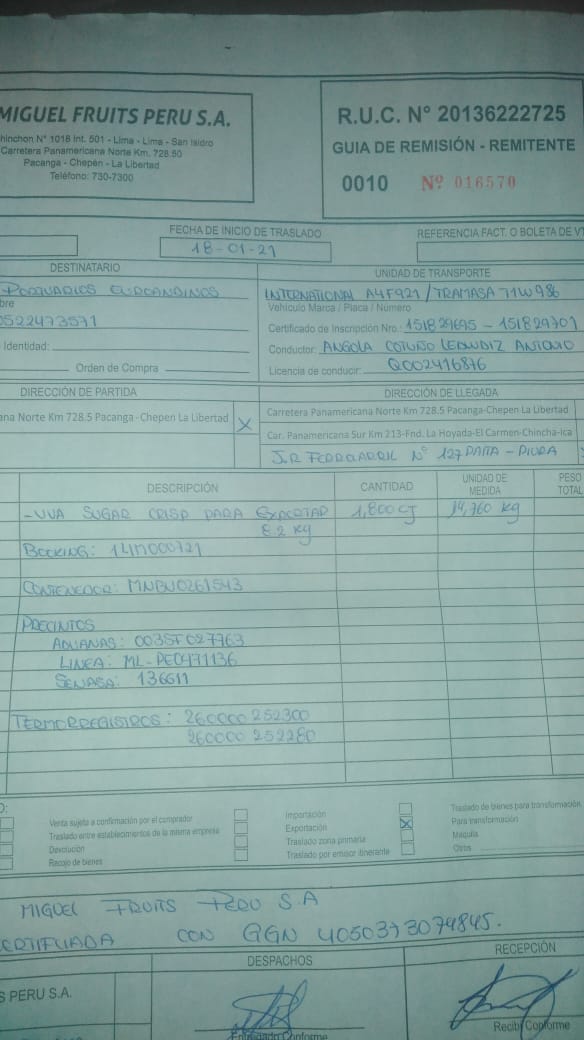 MIGUEL FRUITS PERU S.A.
hinchon N° 1018 Int. 501 - Lima - Lima - San Isidro
Carretera Panamericana Norte Km. 728.50
Pacanga - Chepen - La Libertad
Teléfono: 730-7300
R.U.C. N° 20136222725
GUIA DE REMISIÓN - REMITENTE
0010 Nº 016570
FECHA DE INICIO DE TRASLADO
18-01-21
REFERENCIA FACT. O BOLETA DE V
DESTINATARIO
EUROANDINOS
bre
0522473571
Identidad:
Orden de Compra
UNIDAD DE TRANSPORTE
INTERNATIONAL A4F921 / TRAMASA 71W986
Vehículo Marca / Placa / Número
Certificado de Inscripción Nro.: 151829695 - 151829701
Conductor: ANGOLA ANTONIO
Licencia de conducir: Q002416876
DIRECCIÓN DE PARTIDA
ana Norte Km 728.5 Pacanga-Chepen La Libertad X
DIRECCIÓN DE LLEGADA
Carretera Panamericana Norte Km 728.5 Pacanga-Chepen La Libertad
Car. Panamericana Sur Km 213-Fnd. La Hoyada-El Carmen-Chincha-Ica
JR FERROCARRIL N° 127 PAITA - PIURA
DESCRIPCIÓN
CANTIDAD
UNIDAD DE MEDIDA
PESO TOTAL
- UVA SUGAR CRISP PARA EXPORTAR 1,800 CJ 14,760 kg
8.2 kg
BOOKING: 14IM000721
CONTENEDOR: MNBU0261543
PRECINTOS
ADUANAS: 003SF027963
LINEA: ML-PE0471136
SENASA: 136611
TERMORREGISTROS: 260000 252300
260000 252280
O:
Venta sujeta a confirmación por el comprador
Traslado entre establecimientos de la misma empresa
Devolución
Recojo de bienes
Importación
Exportación
Traslado zona primaria
Traslado por emisor itinerante
X
Traslado de bienes para transformación
Para transformación
Maquila
Otros
MIGUEL FRUITS PERU S.A
CERTIFICADA CON GGN 4050373074845.
DESPACHOS
RECEPCIÓN
S PERU S.A.
Entregado Conforme
Recibí Conforme